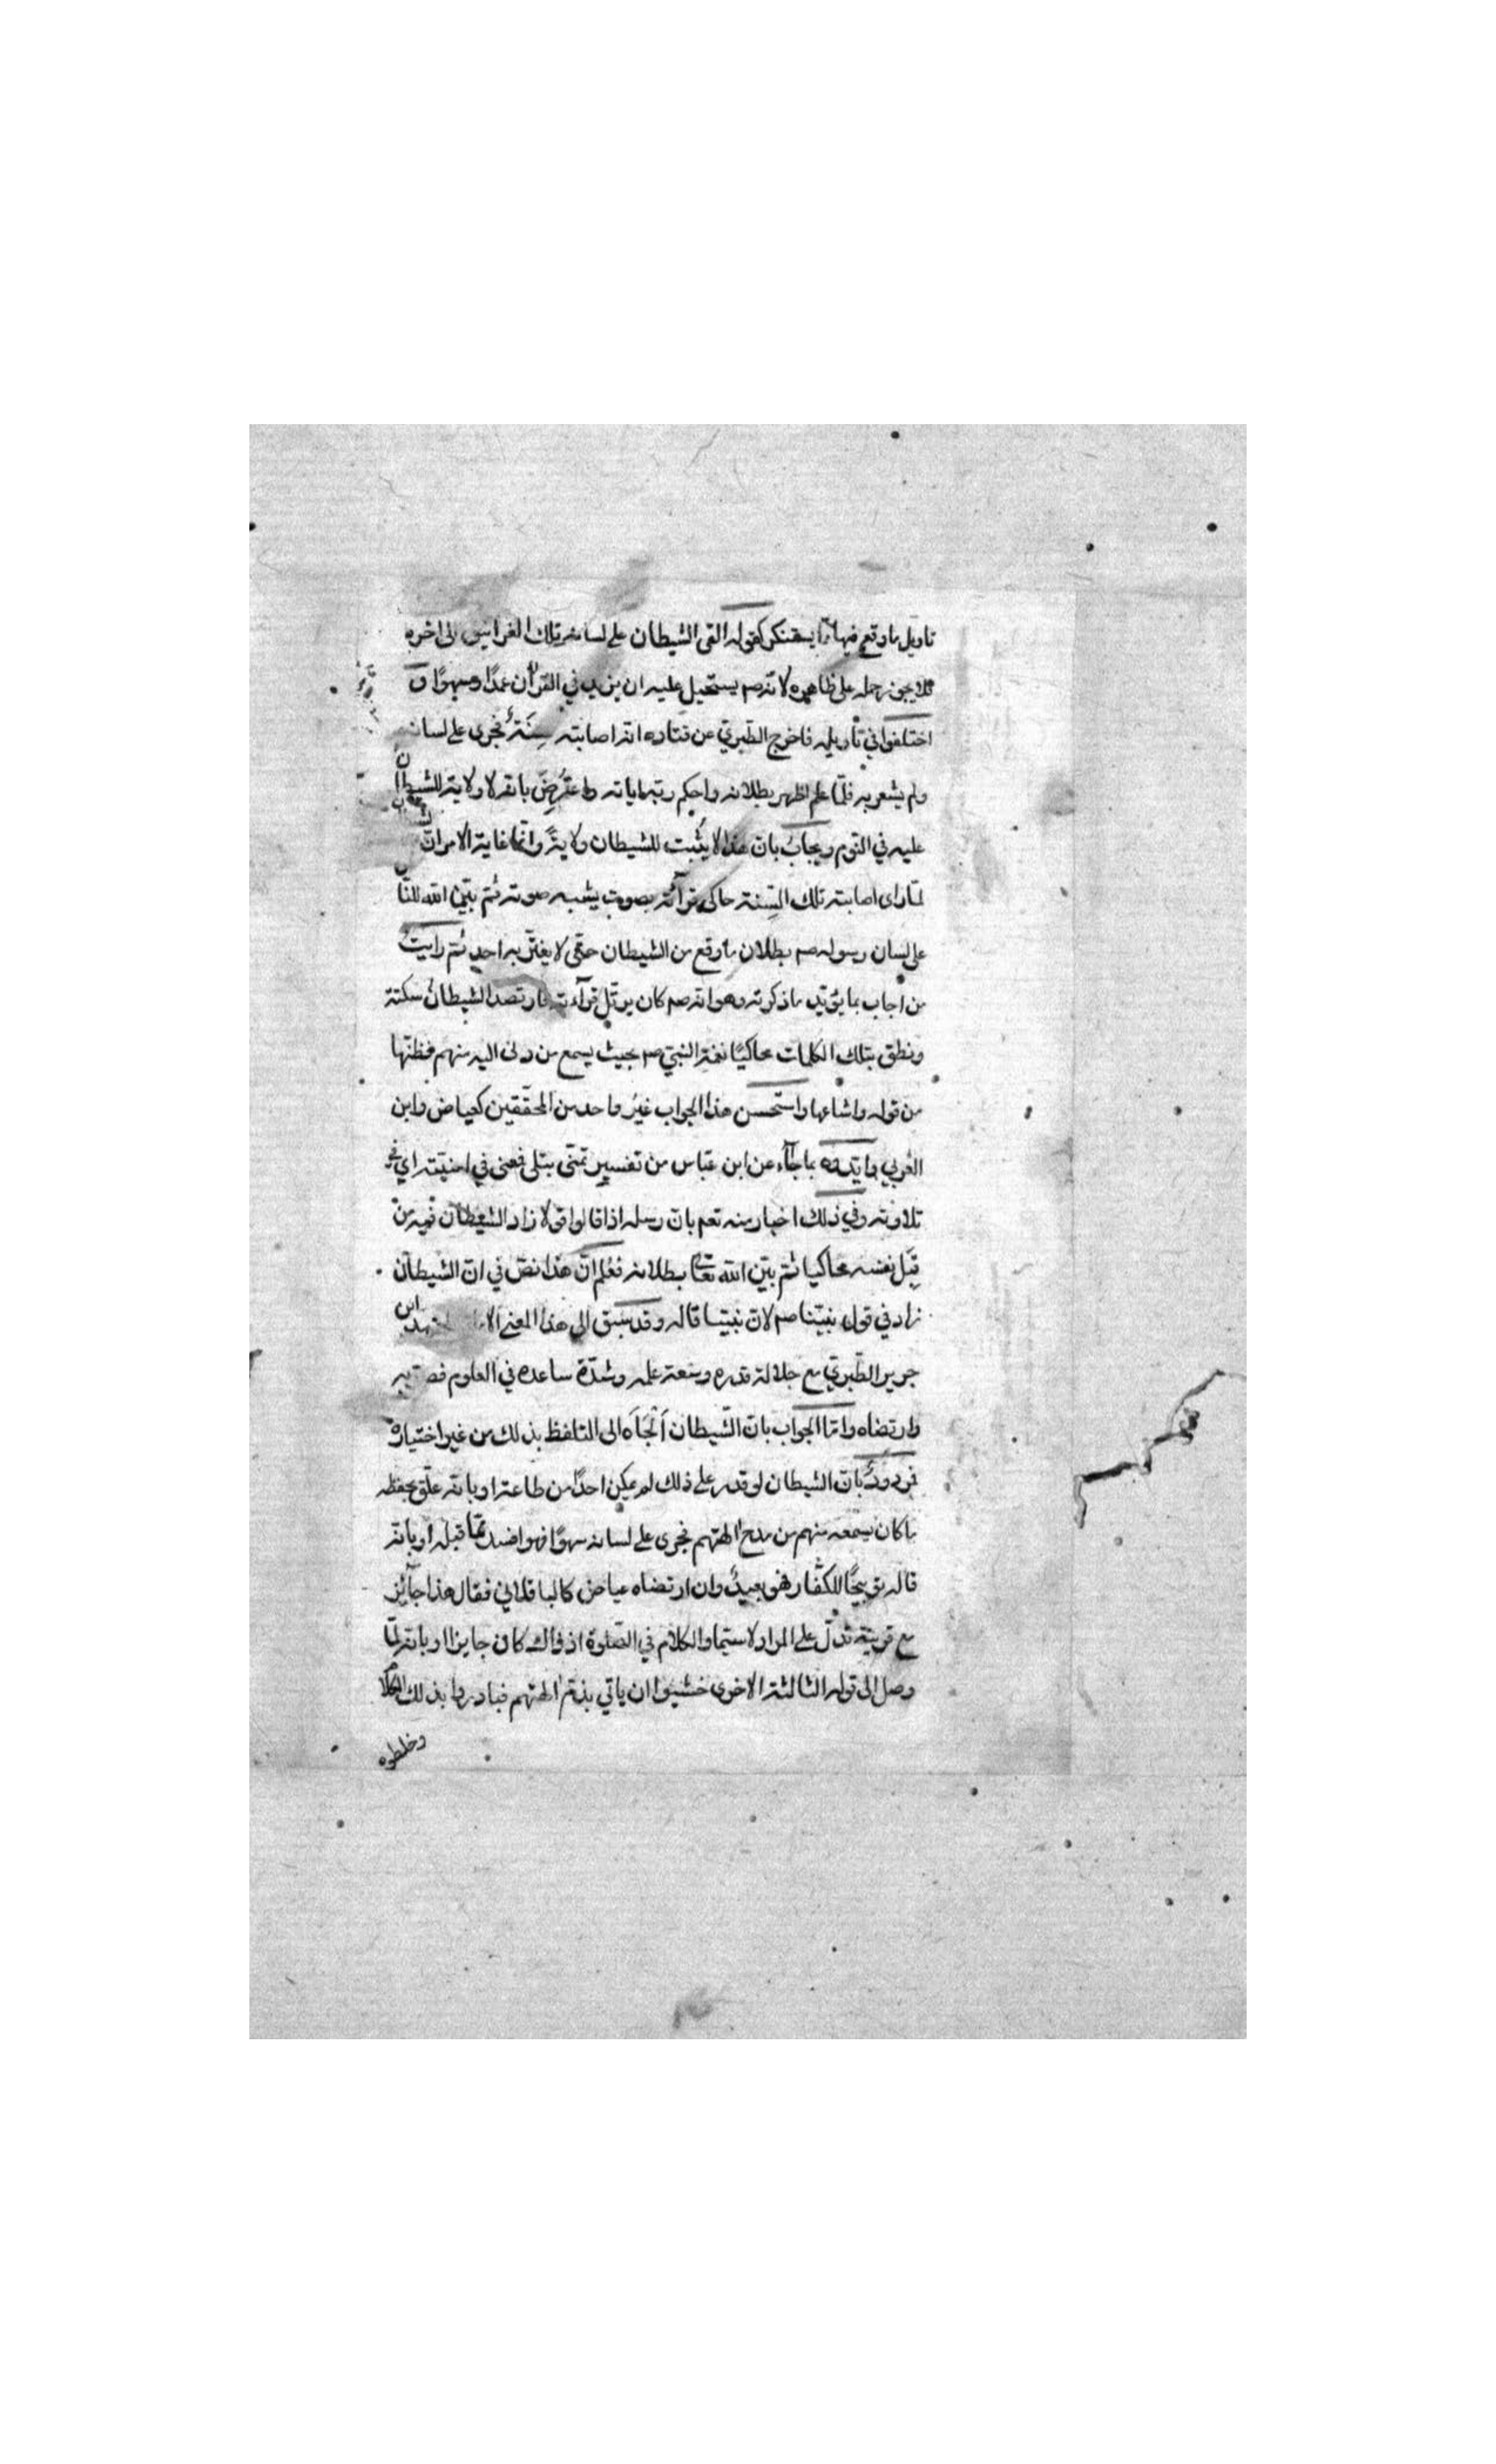 تاويل ما وقع فيها مما يستنكر كقوله القى الشيطان على لسانه تلك الغرانيق الى اخره
فلا يجوز حمله على ظاهره لانه صم يستحيل عليه ان يزيد في القرآن عمدًا وسهوًا و
اختلفوا في تأويله فاخرج الطبري عن قتاده انه اصابته سِنَةٌ فجرى على لسانه
ولم يشعر به فلمّا علم اظهر بطلانه واحكم ربه اياته واعتُرِضَ بانه لا ولاية للشيطان
عليه في النوم ويجابُ بانّ هذا لا يُثبت للشيطان ولايةً وانّما غاية الامر انّ
لمّا راى اصابته تلك السِنة حاكى قرآئته بصوت يشبه صوته ثم بيّن الله للنا
على لسان رسوله صم بطلان ما وقع من الشيطان حتى لا يغترّ به احد ثم رايتُ
من اجاب بما يؤيد ما ذكرته وهو انه صم كان يرتّل قرآءته فارتصد الشيطانُ سكتة
ونطق بتلك الكلمات محاكيًا نغمة النبي صم بحيث يسمع من دنى اليه منهم فظنها
من قوله واشاعها واستحسن هذا الجواب غيرُ واحد من المحقّقين كعياض وابن
العربي وايّده بما جآء عن ابن عبّاس من تفسير تمنّى بتلى فمعنى في امنيّته اي في
تلاوته وفي ذلك اخبار منه تعم بان رسله اذا قالوا قولا زاد الشيطان فيه من
قِبَل نفسه محاكيا ثم بيّن الله تعا بطلانه فعُلِم انّ هذا نصّ في انّ الشيطان
زاد في قول نبيّنا صم لا نّ نبيّنا قاله وقد سبق الى هذا المعنى ابن
جرير الطبري مع جلالة قدره وسعة علمه وشدّة ساعده في العلوم
وارتضاه وامّا الجواب بانّ الشّيطان أَلْجَأَه الى التلفظ بذلك من غير اختياره
فمردودٌ بانّ الشيطان لو قدر على ذلك لم يمكن احدًا من طاعة او بانه علق بحفظه
ما كان يسمعه منهم من مدح الهتهم فجرى على لسانه سهوًا فهو افسد ممّا قبله او بانه
قاله توبيخًا للكفّار فهو بعيدٌ وان ارتضاه عياض كالباقلاني فقال هذا جآئز
مع قرينة تدلّ على المراد لا سيّما والكلام في الصّلوة اذ ذاك كان جايزا او بانه لمّا
وصل الى قوله الثالثة الاخرى خشيوا ان ياتي بذمّ الهتهم فبادروا بذلك الكلام
وخلطوه